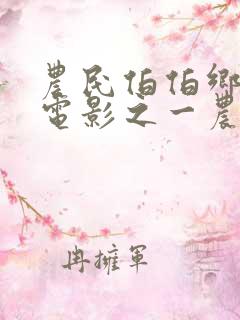 農民伯伯鄉
電影之一農
冉擁軍